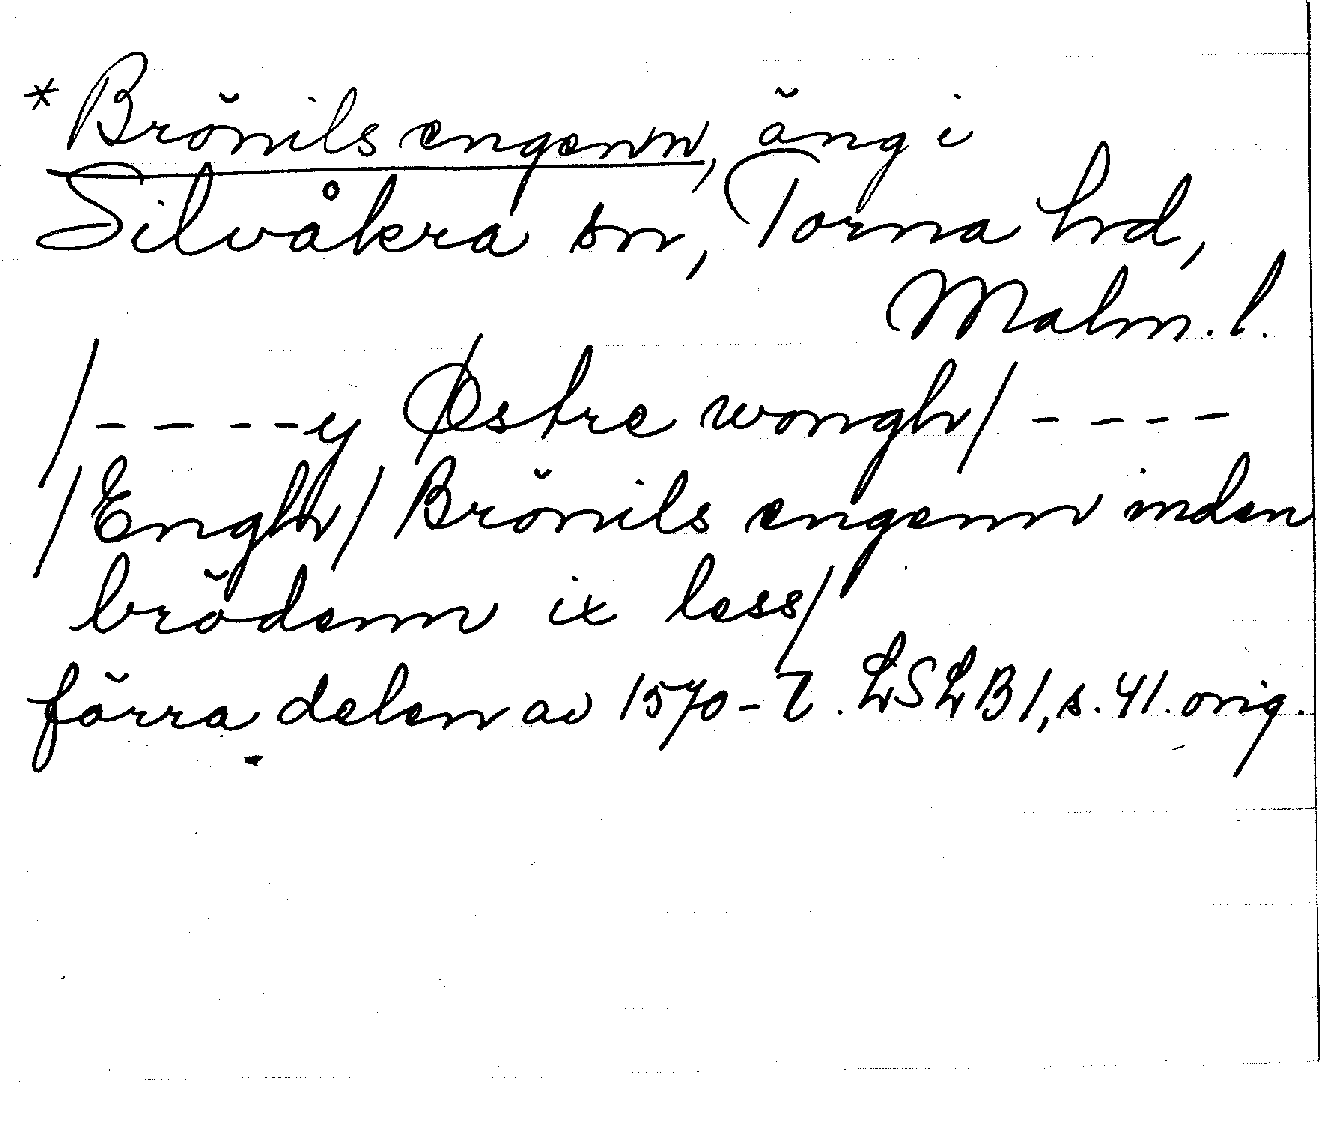 *Brönils engenn, äng i
Silvåkra sn, Torna hrd,
Malm. l.
/----y Østre wongh/ ----
/Engh/ Brönils engenn inden
brödenn ix less/
förra delen av 1570-t. LSLB 1, s. 41. orig.